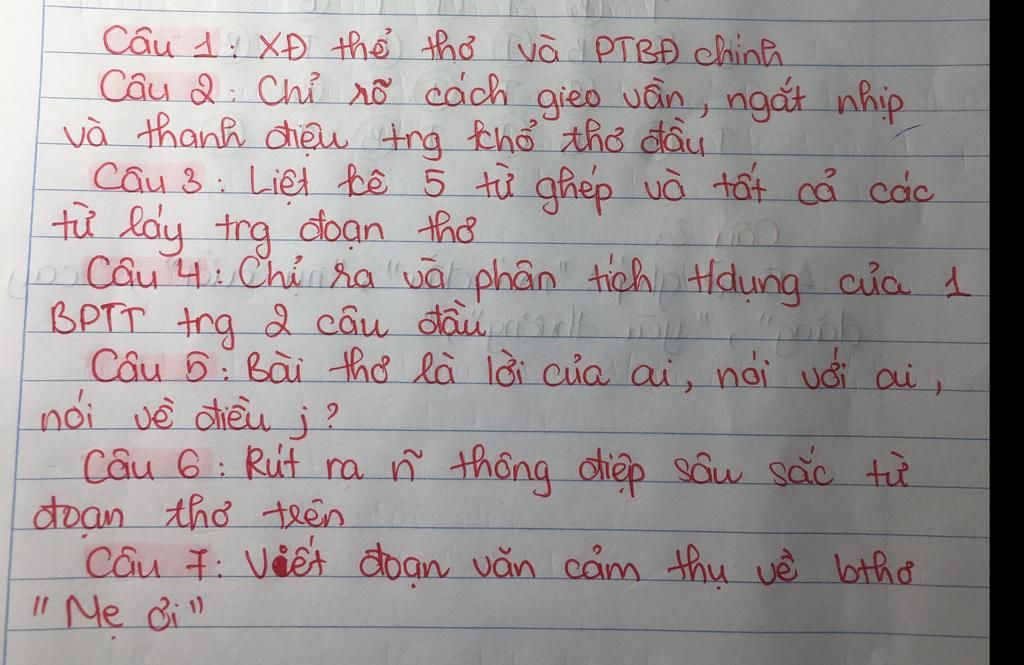 Câu 1: XĐ thể thơ và PTBĐ chính
Câu 2: Chỉ rõ cách gieo vần, ngắt nhịp
và thanh điệu trg khổ thơ đầu
Câu 3: Liệt kê 5 từ ghép và tất cả các
từ láy trg đoạn thơ
Câu 4: Chỉ ra và phân tích tdụng của 1
BPTT trg 2 câu đầu
Câu 5: Bài thơ là lời của ai, nói với ai,
nói về điều j?
Câu 6: Rút ra n~ thông điệp sâu sắc từ
đoạn thơ trên
Câu 7: Viết đoạn văn cảm thụ về bthơ
"Mẹ ơi"